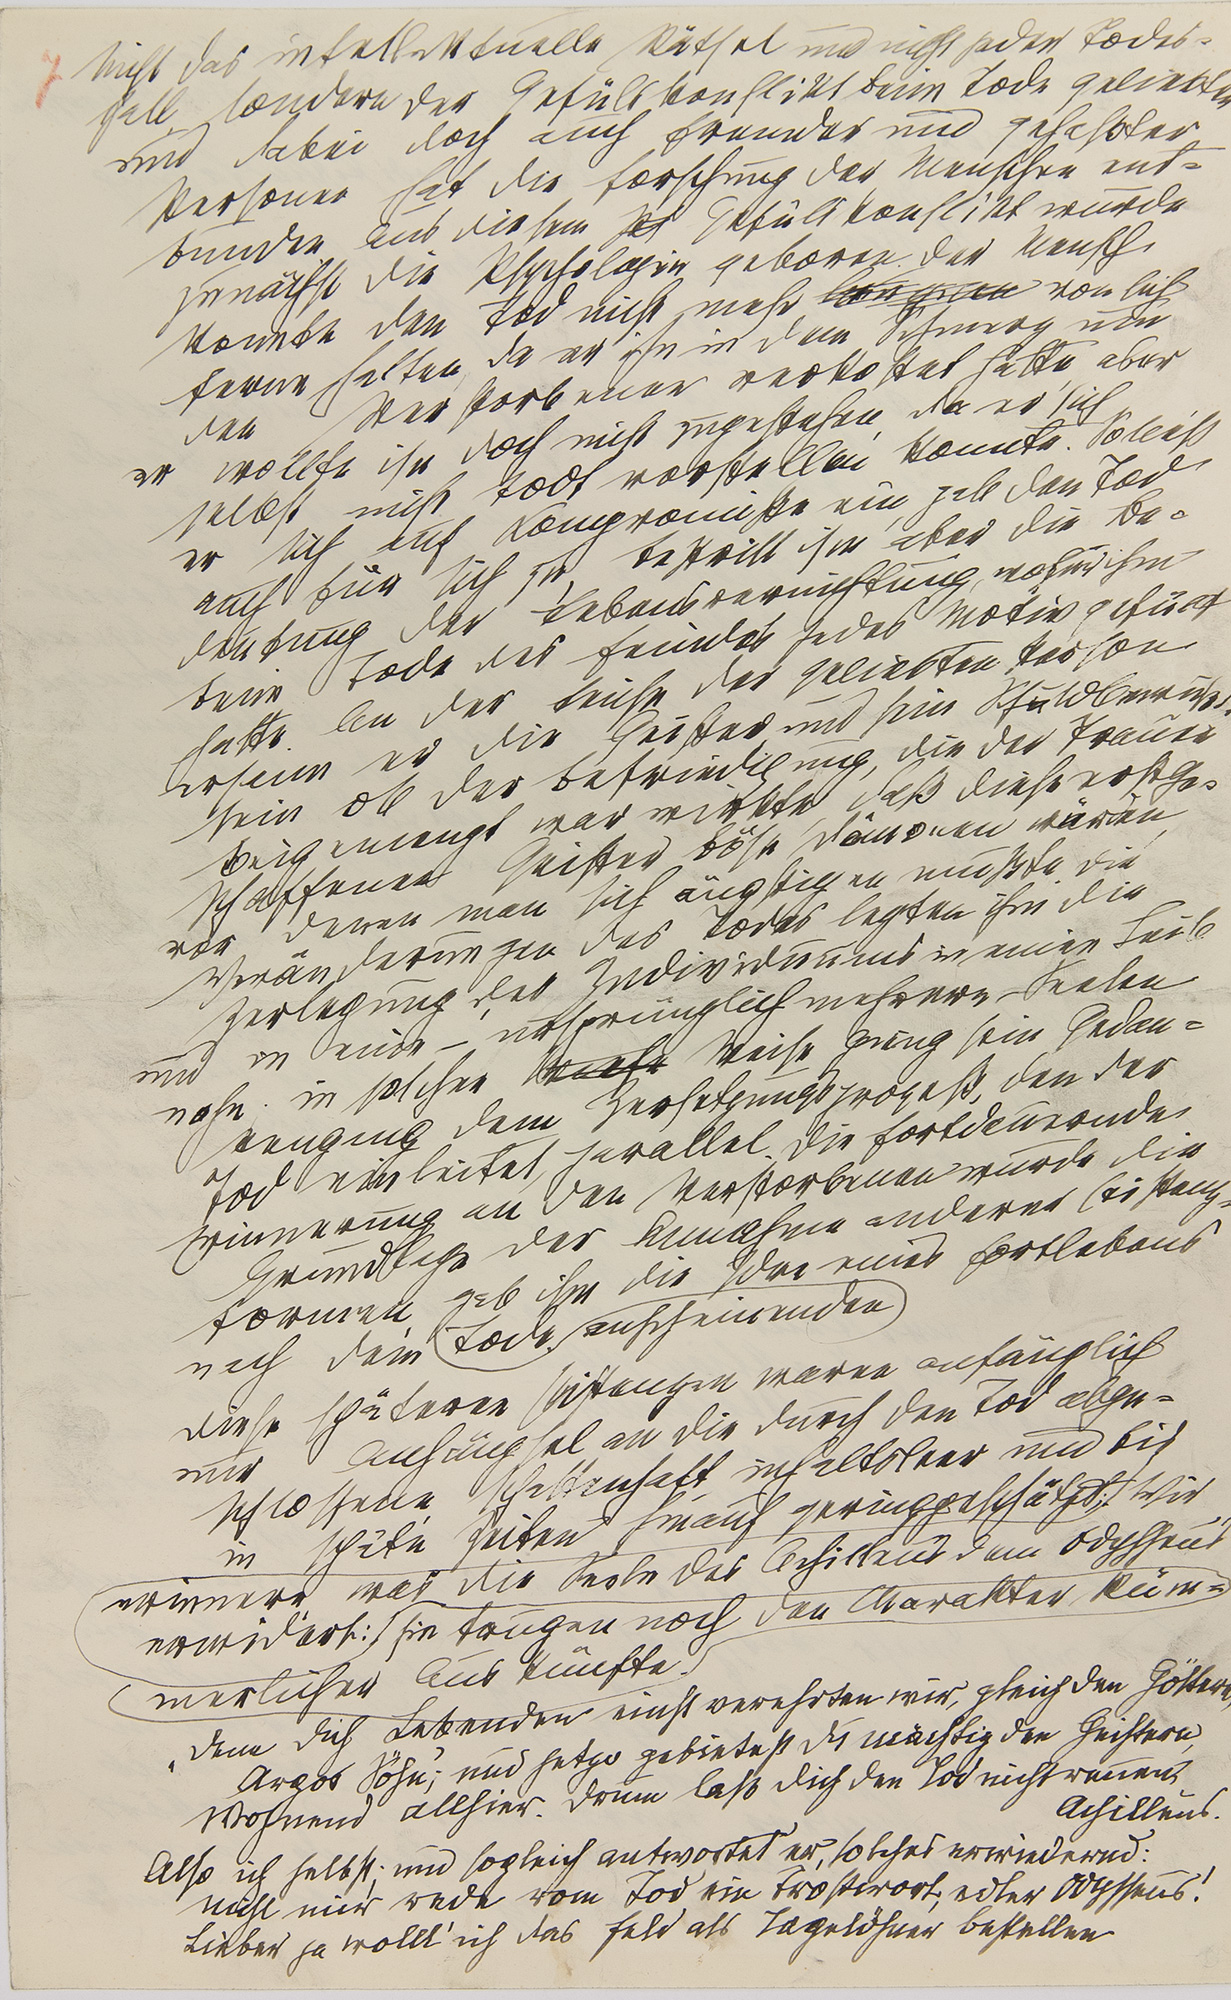 7 Nicht das intellektuelle Rätsel und nicht jeder Todes-
fall sondern der Gefülskonflikt beim Tode geliebter
und dabei doch auch fremder und gehaßter
Personen hat die Forschung der Menschen ent-
bunden. Aus diesem Gefülskonflikt wurde
zunächst die Psychologie geboren. Der Mensch
konnte den Tod nicht mehr von sich
ferne halten, da er ihn in dem Schmerz um
den Verstorbenen verkostet hatte, aber
er wollte ihn doch nicht zugestehen, da er sich
selbst nicht todt vorstellen konnte. So ließ
er sich auf Kompromisse ein, gab den Tod
auch für sich zu, bestritt ihm aber die Be-
deutung der Lebensvernichtung, wofür ihm
beim Tode des Feindes jedes Motiv gefült
hatte. An der Leiche der geliebten Person
ersann er die Geister und sein Schuldbewußt-
sein ob der Befriedigung, die der Trauer
beigemengt war, wirkte, daß diese erstge-
schaffenen Geister böse Dämonen wären,
vor denen man sich ängstigen mußte. Die
Veränderungen des Todes legten ihm die
Zerlegung des Individuums in einen Leib
und in eine – ursprünglich mehrere – Seelen
nahe. in solcher Weise ging sein Gedan-
kengang dem Zersetzungsprozeß, den der
Tod einleitet, parallel. Die fortdauernde
Erinnerung an den Verstorbenen wurde die
Grundlage der Annahme anderer Existenz-
formen, gab ihm die Idee eines Fortlebens
nach dem Tode anscheinenden
Diese späteren Existenzen waren anfänglich
nur Anhängsel an die durch den Tod abge-
schlossene, schattenhaft, inhaltsleer und bis
in späte Zeiten hinauf geringgeschätzt: Wir
erinnern was die Seele des Achilleus dem Odysseus
erwidert:) sie trugen noch den Charakter küm-
merlicher Auskünfte.
„Denn dich Lebenden einst verehrten wir, gleich den Göttern,
Argos Söhn'; und jetzo gebietest du mächtig den Geistern,
Wohnend allhier. Drum laß dich den Tod nicht reuen,
Achilleus.
Also ich selbst; und sogleich antwortet er, solches erwiedernd:
nicht mir rede vom Tod ein Trostwort, edler Odysseus!
Lieber ja wollt' ich das Feld als Tagelöhner bestellen